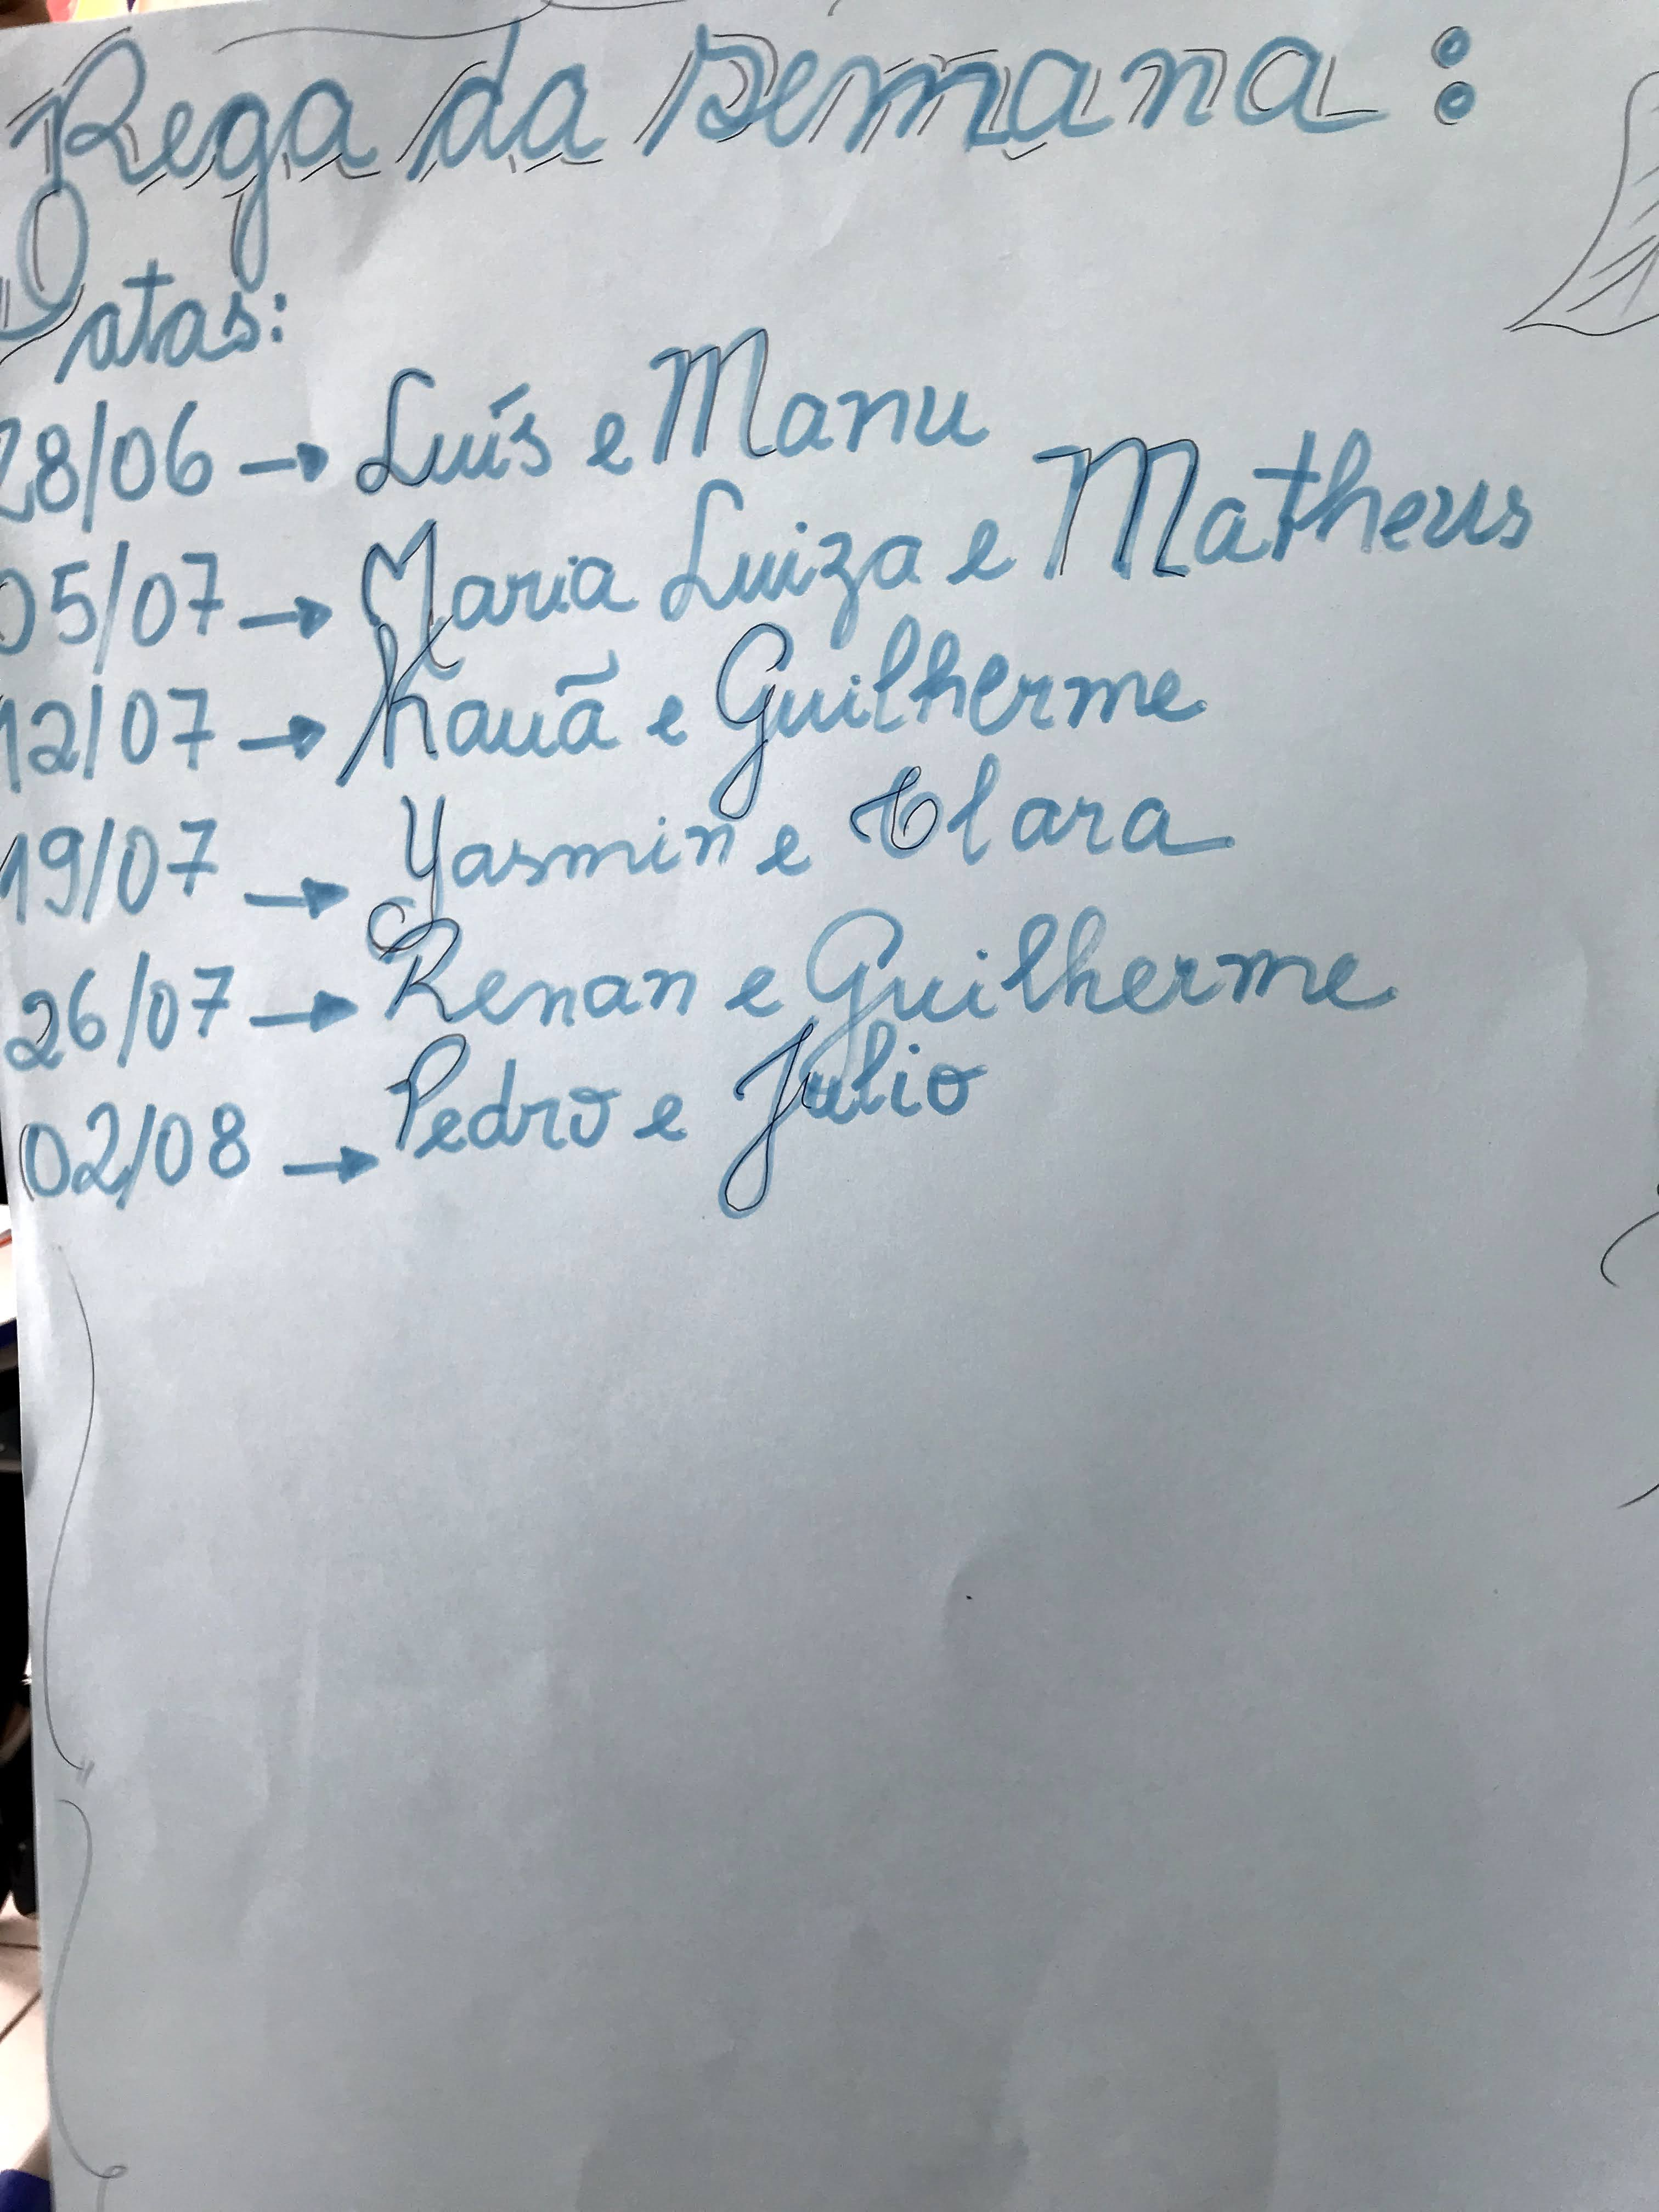 Rega da semana:
Datas:
28/06 → Luís e Manu
05/07 → Maria Luiza e Matheus
12/07 → Kauã e Guilherme
19/07 → Yasmin e Clara
26/07 → Renan e Guilherme
02/08 → Pedro e Julio